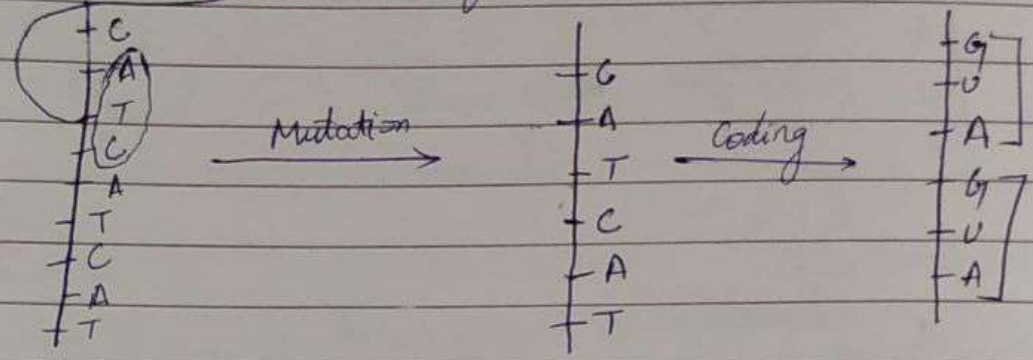 C
A
T
C
A
T
C
A
T
Mutation
C
A
T
C
A
T
Coding
G
U
A
G
U
A